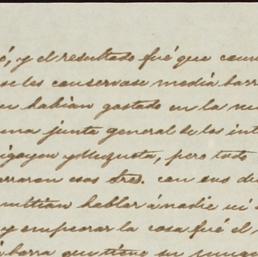 é, y el resultado fué que conv
se les conservase media barr
en habian gastado en la ne
una junta general de los int
y Mezquita, pero todo
raron esos Sres. con sus d
mitian hablar á nadie ni
y empeorar la cosa fué el
barra que tiene su